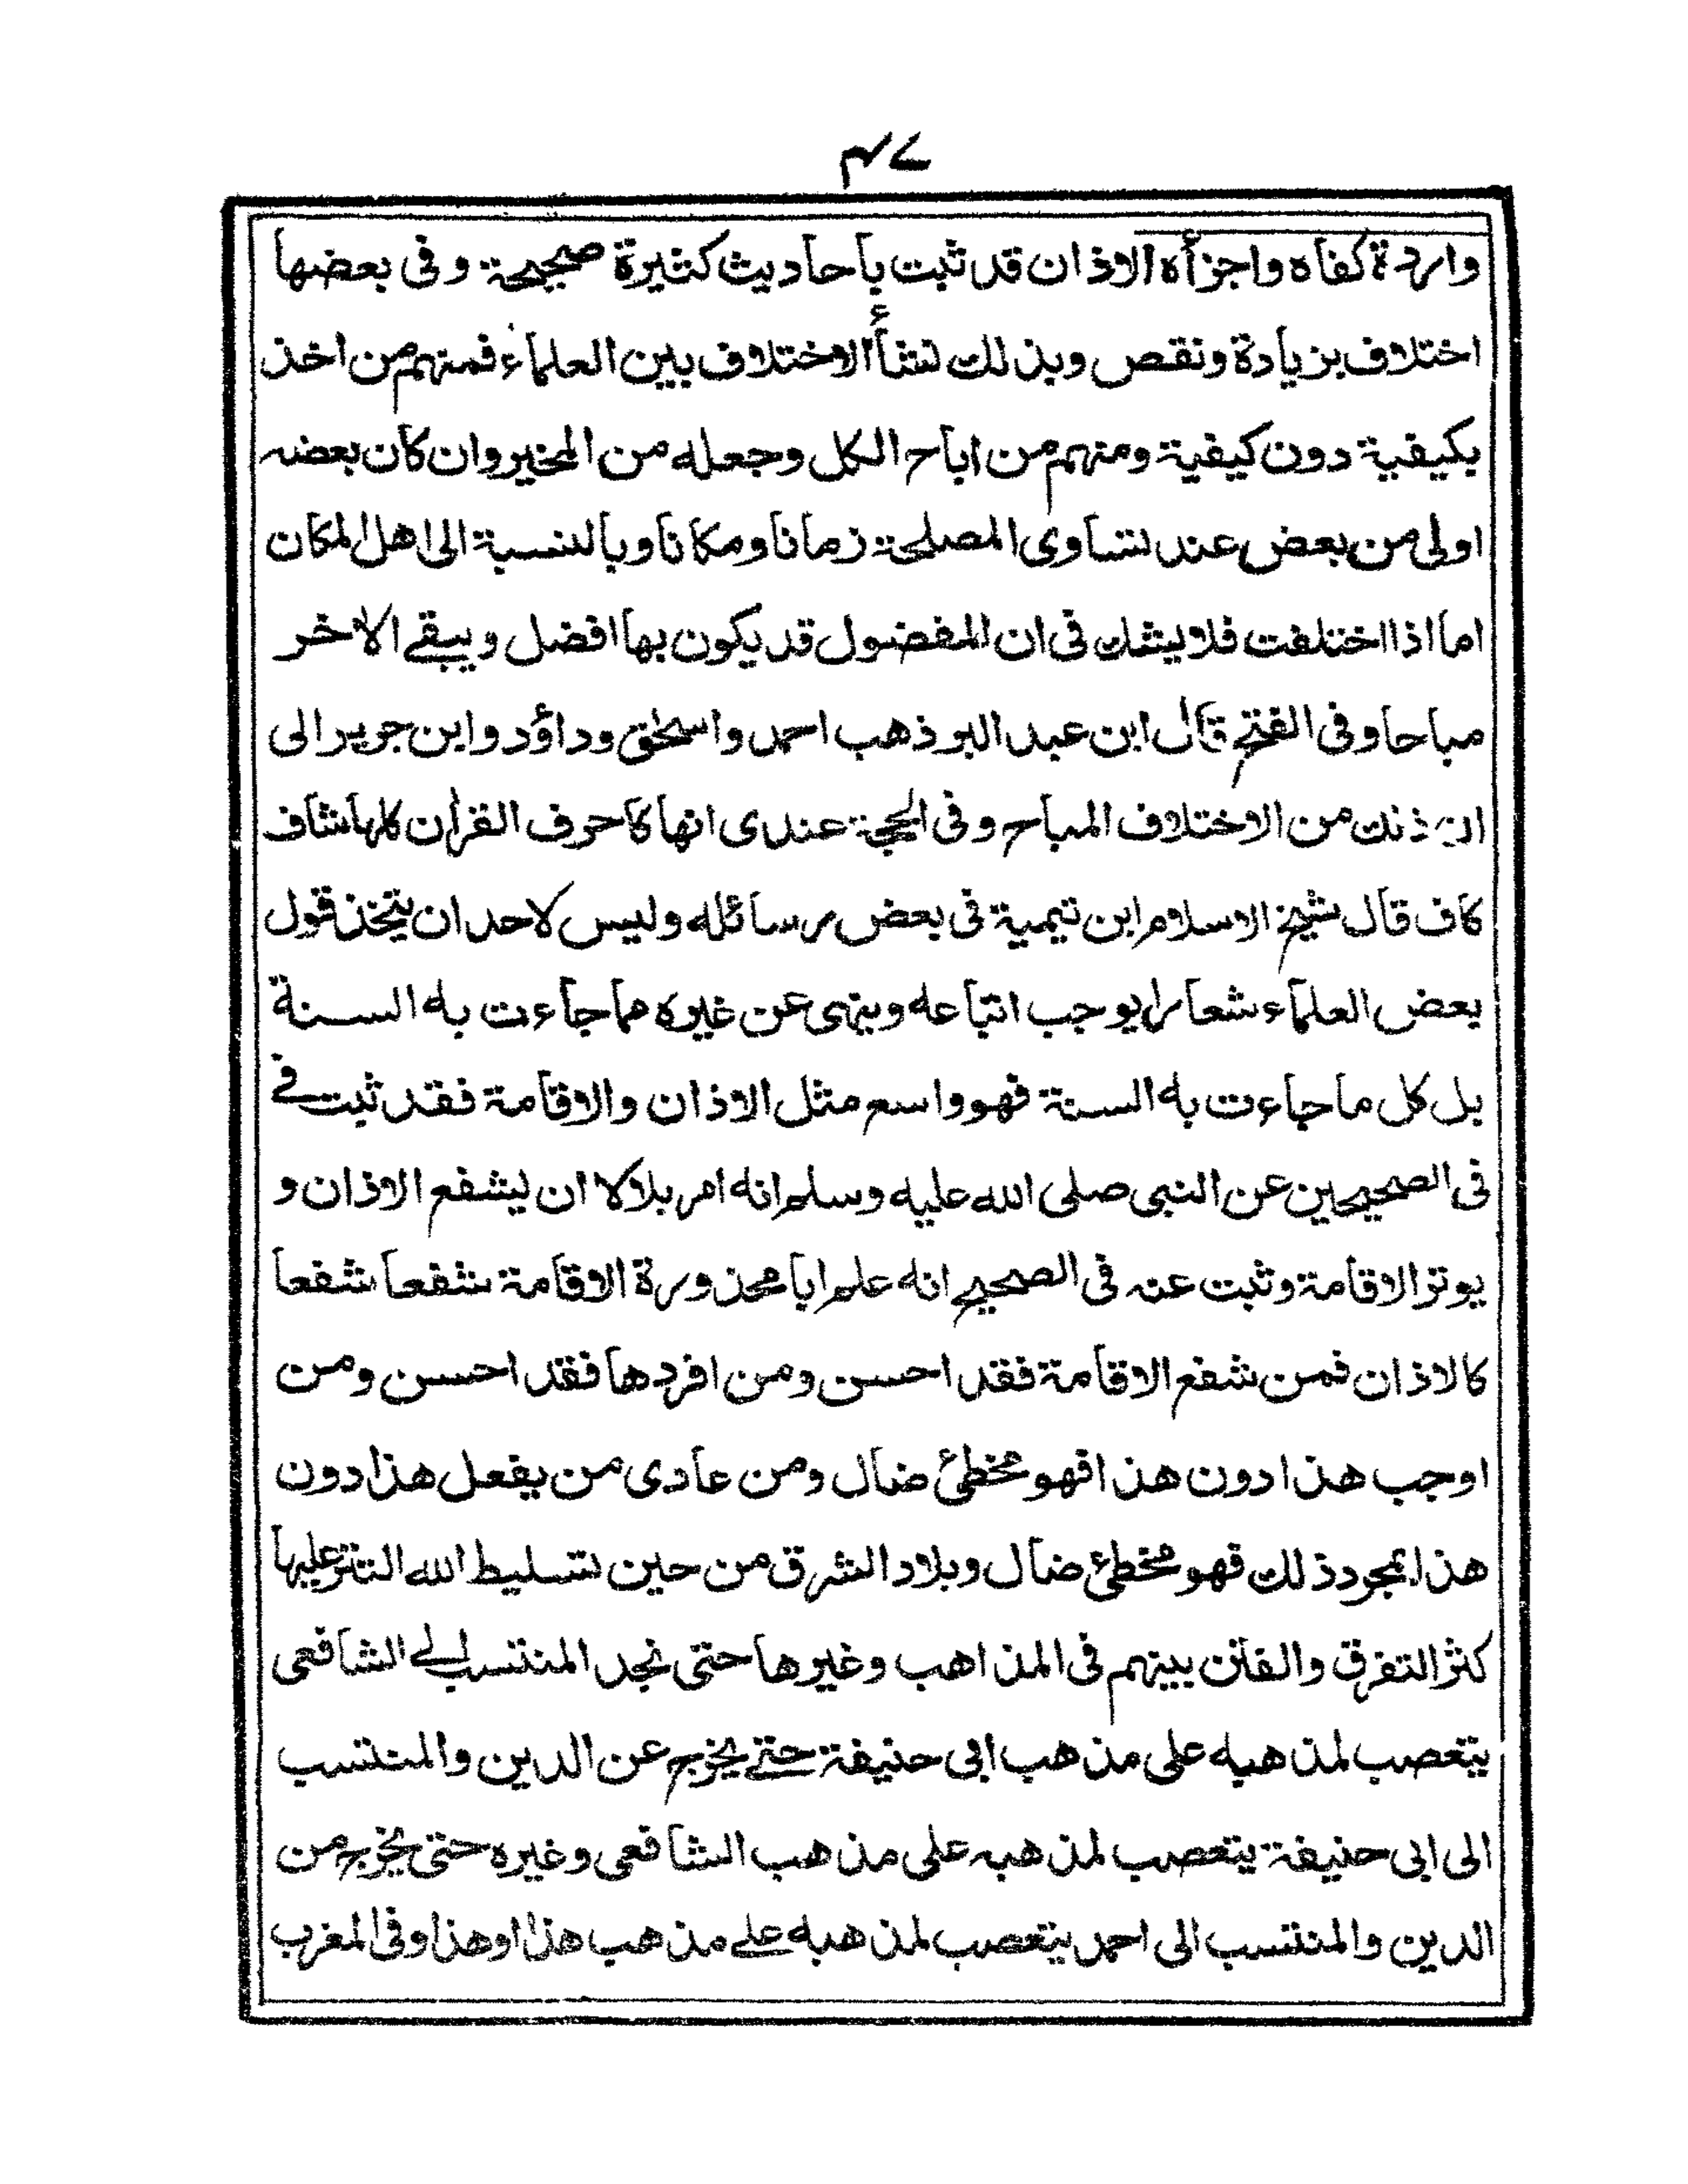 ۴۷
واردة كفاه واجزأه الاذان قد ثبت باحاديث كثيرة صحيحة وفى بعضها
اختلاف بزيادة ونقص وبذلك نشأ الاختلاف بين العلماء فمنهم من اخذ
بكيفية دون كيفية ومنهم من اباح الكل وجعله من المخير وان كان بعضه
اولى من بعض عند تساوى المصلحة زمانا ومكانا وبالنسبة الى اهل المكان
اما اذا اختلفت فلا يشك فى ان المفضول قد يكون بها افضل ويبقے الاخر
مباحا وفى الفتح قال ابن عبد البر ذهب احمد واسحٰق وداؤد وابن جرير الى
ان ذلك من الاختلاف المباح وفى الحجة عندى انها كاحرف القرأن كلها شاف
كاف قال شيخ الاسلام ابن تيمية فى بعض رسائله وليس لاحد ان يتخذ قول
بعض العلماء شعارا يوجب اتباعه وينهى عن غيره مما جاءت به السنة
بل كل ما جاءت به السنة فهو واسع مثل الاذان والاقامة فقد ثبت فے
فى الصحيحين عن النبى صلى الله عليه وسلم انه امر بلالا ان يشفع الاذان و
يوتر الاقامة وثبت عنه فى الصحيح انه علم ابا محذورة الاقامة شفعا شفعا
كالاذان فمن شفع الاقامة فقد احسن ومن افردها فقد احسن ومن
اوجب هذا دون هذا فهو مخطئ ضال ومن عادى من يفعل هذا دون
هذا بمجرد ذلك فهو مخطئ ضال وبلاد الشرق من حين تسليط الله التتر عليها
كثر التفرق والفتن بينهم فى المذاهب وغيرها حتى نجد المنتسب الے الشافعى
يتعصب لمذهبه على مذهب ابى حنيفة حتے يخرج عن الدين والمنتسب
الى ابى حنيفة يتعصب لمذهبه على مذهب الشافعى وغيره حتى يخرج من
الدين والمنتسب الى احمد يتعصب لمذهبه علے مذهب هذا او هذا وفى المغرب